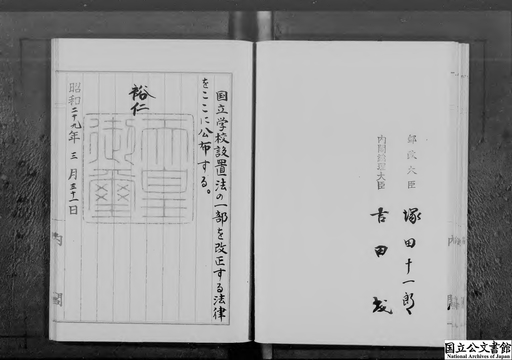 郵政大臣
塚田十一郎
内閣総理大臣
吉田茂
国立学校設置法の一部を改正する法律
をここに公布する。
裕仁
天皇御璽
昭和二十九年三月三十一日
内閣
内閣
国立公文書館
National Archives of Japan